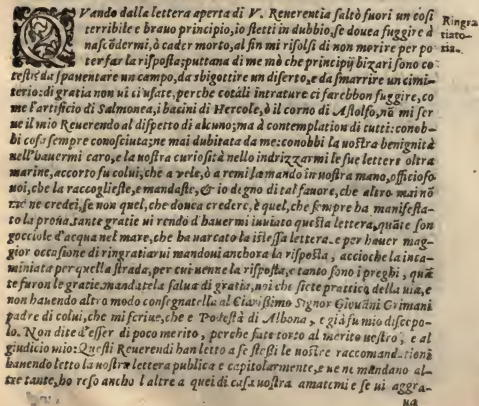 QVando dalla lettera aperta di V. Reuerentia saltò fuori un così
Ringra
tiato-
ria.
terribile e brauo principio, io stetti in dubbio, se douea fuggire ò
nascõdermi, ò cader morto, al fin mi risolsi di non morire per po
ter far la risposta; puttana di me mò che principij bizari sono co
testi da spauentare un campo, da sbigottire un diserto, e da smarrire un cimi-
terio: di gratia non ui ci usate, perche cotali intrature ci farebbon fuggire, co
me l'artificio di Salmonea, i bacini di Hercole, ò il corno di Astolfo, nõ mi ser
ue il mio Reuerendo al dispetto di alcuno; ma à contemplation di tutti: conob-
bi cosa sempre conosciuta; ne mai dubitata da me: conobbi la uostra benignità
nell'hauermi caro, e la uostra curiosità nello indrizzarmi le sue lettere oltra
marine, accorto fu colui, che a vele, ò a remi la mando in uostra mano, officioso
uoi, che la raccogliete, e mandaste, & io degno di tal fauore, che altro mai nõ
ne credei, se non quel, che douea credere, è quel, che sempre ha manifesta-
to la proua. tante gratie ui rendo d'hauermi inuiato questa lettera, quãte son
gocciole d'acqua nel mare, che ha uarcato la istessa lettera. e per hauer mag-
gior occasione di ringratiarui mandoui anchora la risposta, accioche la inca-
miniate per quella strada, per cui uenne la risposta, e tanto sono i preghi, quã
te furon le gratie. mandatela salua di gratia, uoi che siete prattico della uia, e
non hauendo altro modo consegnatella al Clarissimo Signor Giouãni Grimani
padre di colui, che mi scriue, che e Podestà di Albona, e già fu mio discepo-
lo. Non dite d'esser di poco merito, perche fate torto al merito uostro, e al
giudicio mio: Questi Reuerendi han letto a se stessi le uostre raccomandationi
hauendo letto la uostra lettera publica e capitolarmente, e ue ne mandano al-
tre tante, ho reso ancho l'altre a quei di casa uostra amatemi e se ui aggra-
ua